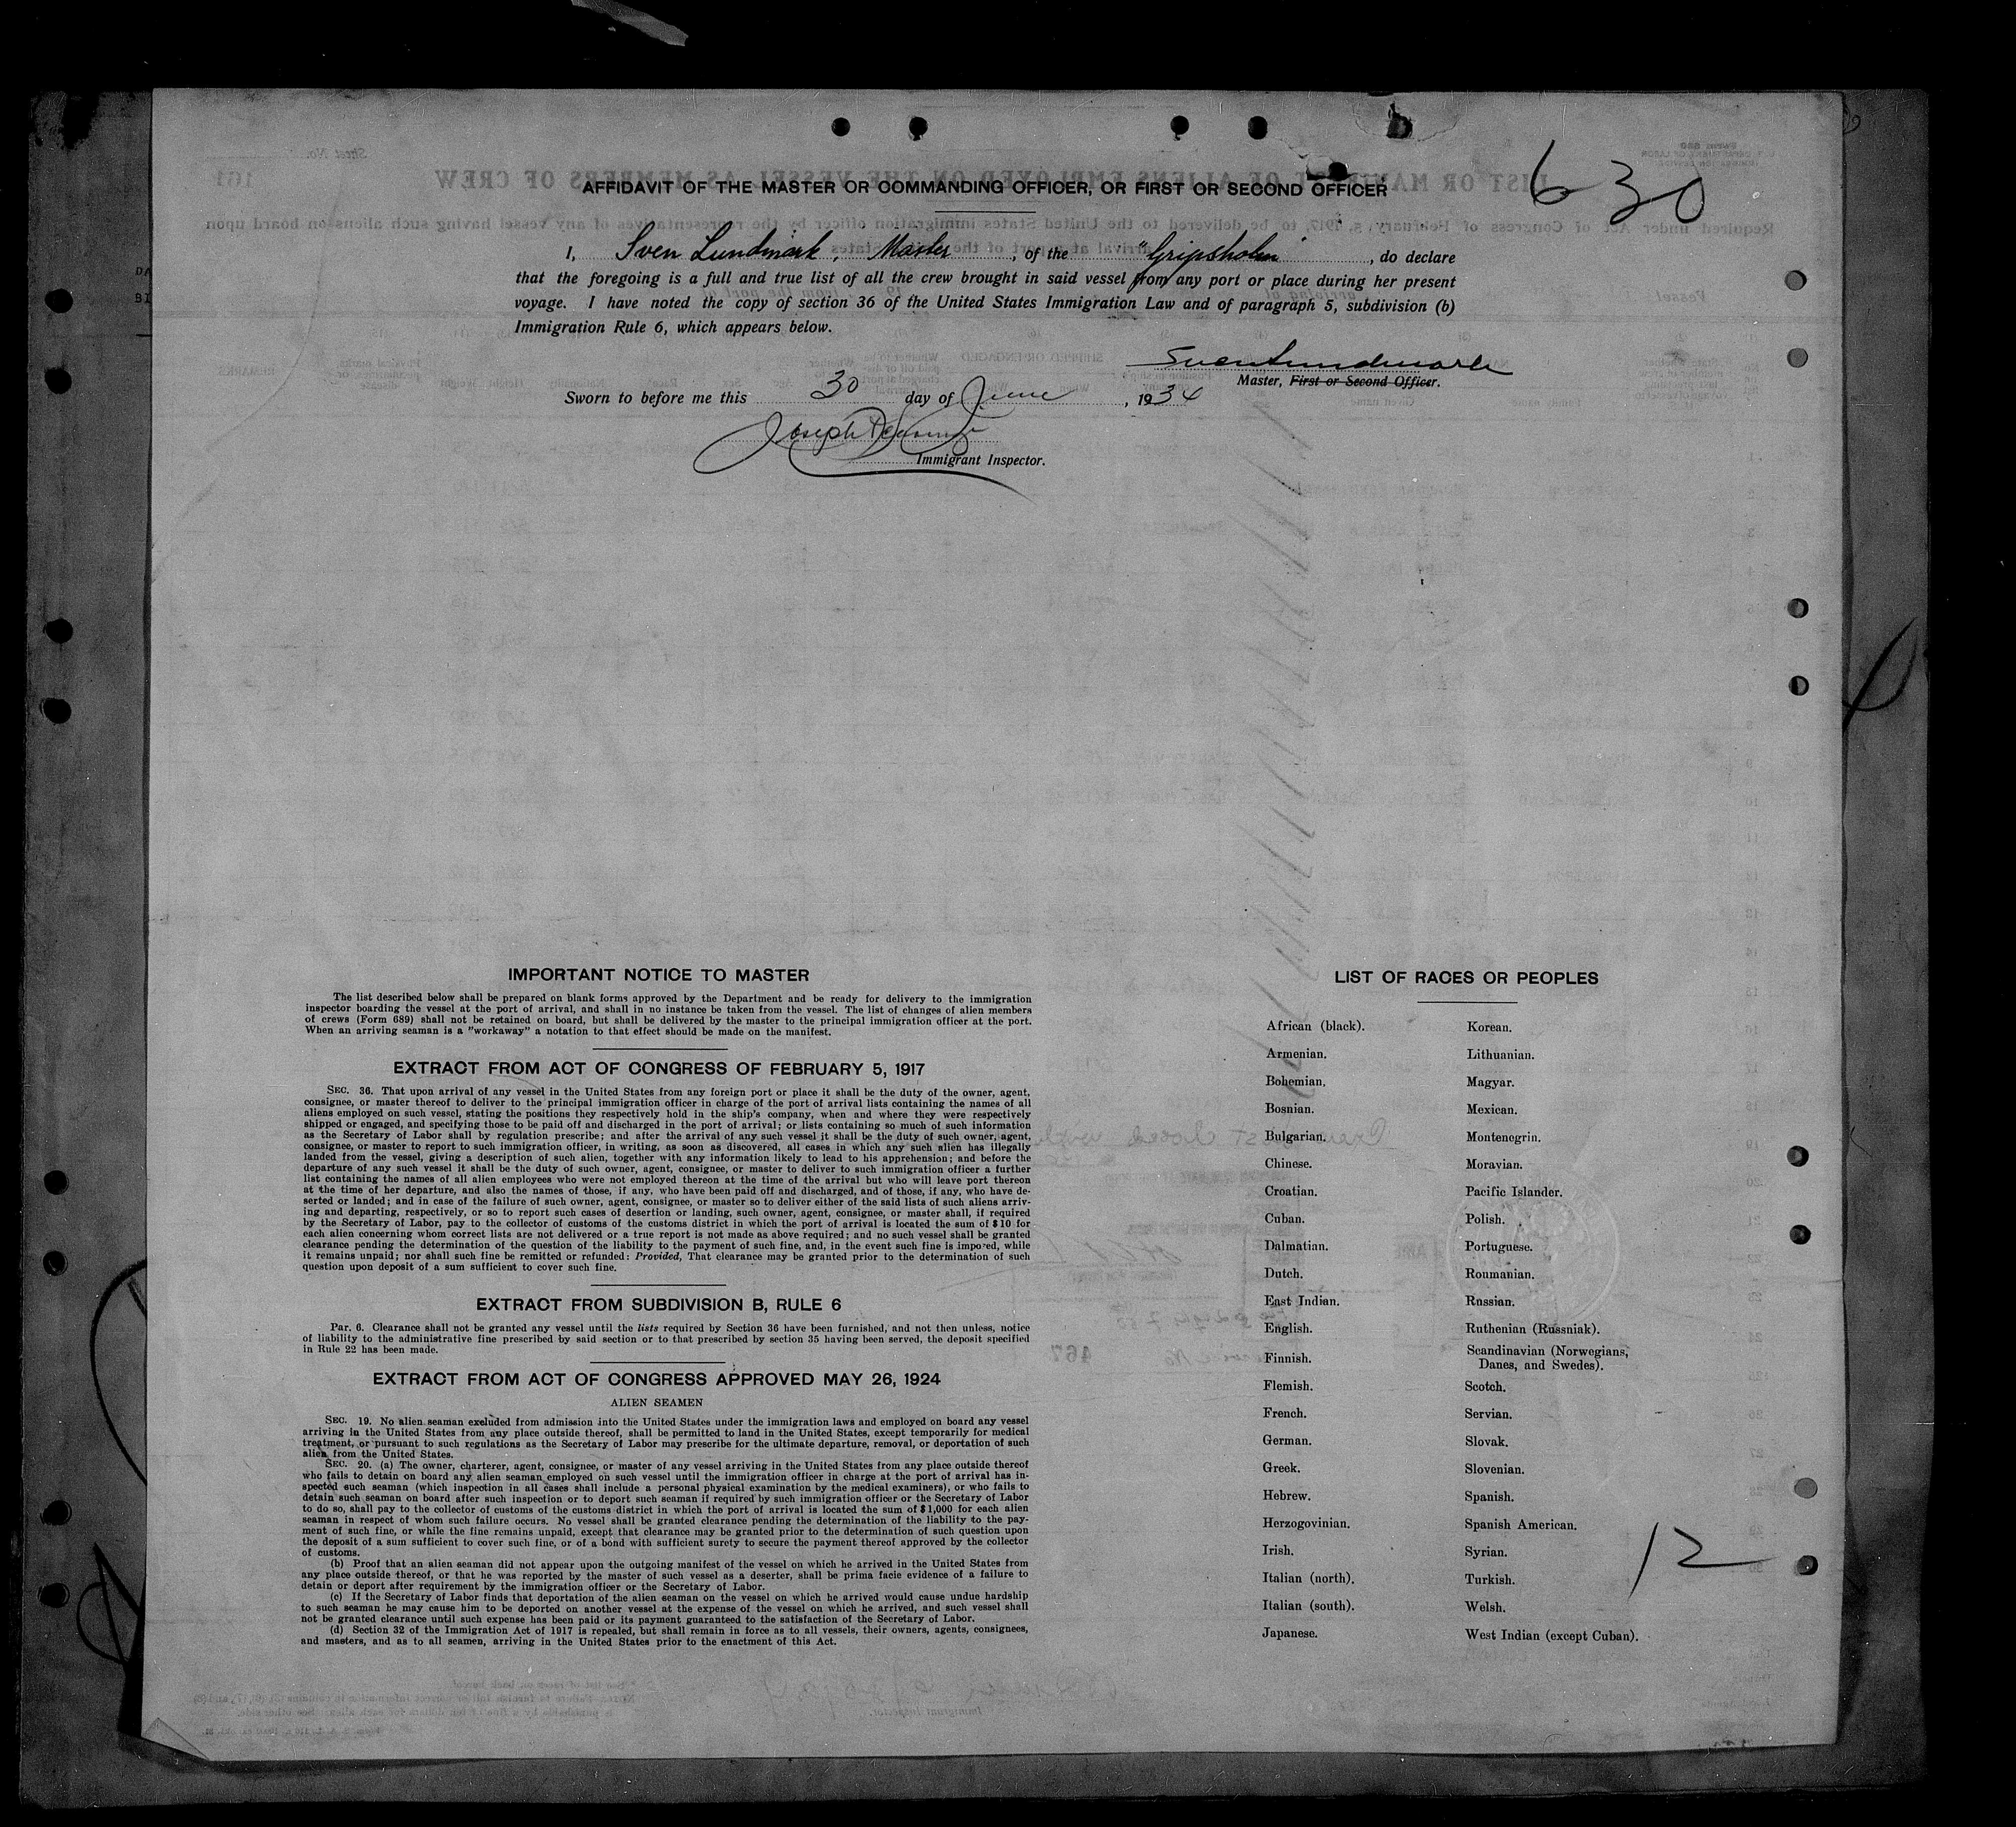 6 30
AFFIDAVIT OF THE MASTER OR COMMANDING OFFICER, OR FIRST OR SECOND OFFICER
I, Sven Lundmark, Master, of the "Gripsholm", do declare
that the foregoing is a full and true list of all the crew brought in said vessel from any port or place during her present
voyage. I have noted the copy of section 36 of the United States Immigration Law and of paragraph 5, subdivision (b)
Immigration Rule 6, which appears below.
Sven Lundmark
Master, First or Second Officer.
Sworn to before me this 30 day of June, 1934
Joseph
Immigrant Inspector.
IMPORTANT NOTICE TO MASTER
The list described below shall be prepared on blank forms approved by the Department and be ready for delivery to the immigration
inspector boarding the vessel at the port of arrival, and shall in no instance be taken from the vessel. The list of changes of alien members
of crews (Form 689) shall not be retained on board, but shall be delivered by the master to the principal immigration officer at the port.
When an arriving seaman is a "workaway" a notation to that effect should be made on the manifest.
EXTRACT FROM ACT OF CONGRESS OF FEBRUARY 5, 1917
SEC. 36. That upon arrival of any vessel in the United States from any foreign port or place it shall be the duty of the owner, agent,
consignee, or master thereof to deliver to the principal immigration officer in charge of the port of arrival lists containing the names of all
aliens employed on such vessel, stating the positions they respectively hold in the ship's company, when and where they were respectively
shipped or engaged, and specifying those to be paid off and discharged in the port of arrival; or lists containing so much of such information
as the Secretary of Labor shall by regulation prescribe; and after the arrival of any such vessel it shall be the duty of such owner, agent,
consignee, or master to report to such immigration officer, in writing, as soon as discovered, all cases in which any such alien has illegally
landed from the vessel, giving a description of such alien, together with any information likely to lead to his apprehension; and before the
departure of any such vessel it shall be the duty of such owner, agent, consignee, or master to deliver to such immigration officer a further
list containing the names of all alien employees who were not employed thereon at the time of the arrival but who will leave port thereon
at the time of her departure, and also the names of those, if any, who have been paid off and discharged, and of those, if any, who have de-
serted or landed; and in case of the failure of such owner, agent, consignee, or master so to deliver either of the said lists of such aliens arriv-
ing and departing, respectively, or so to report such cases of desertion or landing, such owner, agent, consignee, or master shall, if required
by the Secretary of Labor, pay to the collector of customs of the customs district in which the port of arrival is located the sum of $10 for
each alien concerning whom correct lists are not delivered or a true report is not made as above required; and no such vessel shall be granted
clearance pending the determination of the question of the liability to the payment of such fine, and, in the event such fine is imposed, while
it remains unpaid; nor shall such fine be remitted or refunded: Provided, That clearance may be granted prior to the determination of such
question upon deposit of a sum sufficient to cover such fine.
EXTRACT FROM SUBDIVISION B, RULE 6
Par. 6. Clearance shall not be granted any vessel until the lists required by Section 36 have been furnished, and not then unless, notice
of liability to the administrative fine prescribed by said section or to that prescribed by section 35 having been served, the deposit specified
in Rule 22 has been made.
EXTRACT FROM ACT OF CONGRESS APPROVED MAY 26, 1924
ALIEN SEAMEN
SEC. 19. No alien seaman excluded from admission into the United States under the immigration laws and employed on board any vessel
arriving in the United States from any place outside thereof, shall be permitted to land in the United States, except temporarily for medical
treatment, or pursuant to such regulations as the Secretary of Labor may prescribe for the ultimate departure, removal, or deportation of such
alien from the United States.
SEC. 20. (a) The owner, charterer, agent, consignee, or master of any vessel arriving in the United States from any place outside thereof
who fails to detain on board any alien seaman employed on such vessel until the immigration officer in charge at the port of arrival has in-
spected such seaman (which inspection in all cases shall include a personal physical examination by the medical examiners), or who fails to
detain such seaman on board after such inspection or to deport such seaman if required by such immigration officer or the Secretary of Labor
to do so, shall pay to the collector of customs of the customs district in which the port of arrival is located the sum of $1,000 for each alien
seaman in respect of whom such failure occurs. No vessel shall be granted clearance pending the determination of the liability to the pay-
ment of such fine, or while the fine remains unpaid, except that clearance may be granted prior to the determination of such question upon
the deposit of a sum sufficient to cover such fine, or of a bond with sufficient surety to secure the payment thereof approved by the collector
of customs.
(b) Proof that an alien seaman did not appear upon the outgoing manifest of the vessel on which he arrived in the United States from
any place outside thereof, or that he was reported by the master of such vessel as a deserter, shall be prima facie evidence of a failure to
detain or deport after requirement by the immigration officer or the Secretary of Labor.
(c) If the Secretary of Labor finds that deportation of the alien seaman on the vessel on which he arrived would cause undue hardship
to such seaman he may cause him to be deported on another vessel at the expense of the vessel on which he arrived, and such vessel shall
not be granted clearance until such expense has been paid or its payment guaranteed to the satisfaction of the Secretary of Labor.
(d) Section 32 of the Immigration Act of 1917 is repealed, but shall remain in force as to all vessels, their owners, agents, consignees,
and masters, and as to all seamen, arriving in the United States prior to the enactment of this Act.
LIST OF RACES OR PEOPLES
African (black).
Armenian.
Bohemian.
Bosnian.
Bulgarian.
Chinese.
Croatian.
Cuban.
Dalmatian.
Dutch.
East Indian.
English.
Finnish.
Flemish.
French.
German.
Greek.
Hebrew.
Herzogovinian.
Irish.
Italian (north).
Italian (south).
Japanese.
Korean.
Lithuanian.
Magyar.
Mexican.
Montenegrin.
Moravian.
Pacific Islander.
Polish.
Portuguese.
Roumanian.
Russian.
Ruthenian (Russniak).
Scandinavian (Norwegians,
Danes, and Swedes).
Scotch.
Servian.
Slovak.
Slovenian.
Spanish.
Spanish American.
Syrian.
Turkish.
Welsh.
West Indian (except Cuban).
12